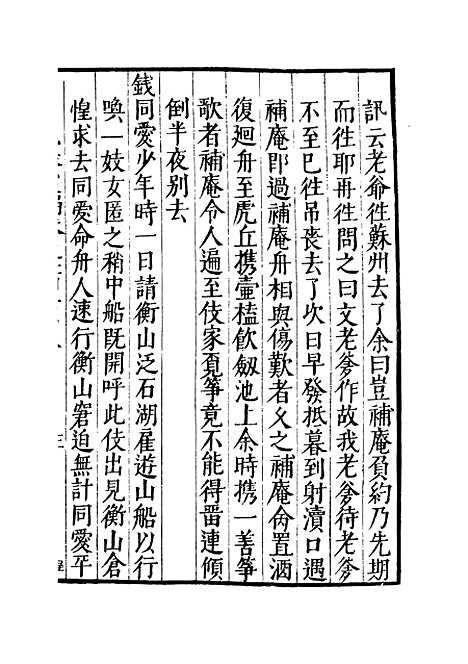 訊云老爺徃蘇州去了余曰豈補庵負約乃先期
而徃耶再徃問之曰文老爹作故我老爹待老爹
不至已徃吊䘮去了次日早發抵暮到射瀆口遇
補庵即過補庵舟相與傷歎者乆之補庵命置酒
復廻舟至虎丘携壷榼飲劔池上余時携一善箏
歌者補庵令人遍至伎家覔箏竟不能得罍連傾
倒半夜别去
錢同愛少年時一日請衡山泛石湖雇遊山船以行
喚一妓女匿之稍中船既開呼此伎出見衡山倉
惶求去同愛命舟人速行衡山窘迫無計同愛平